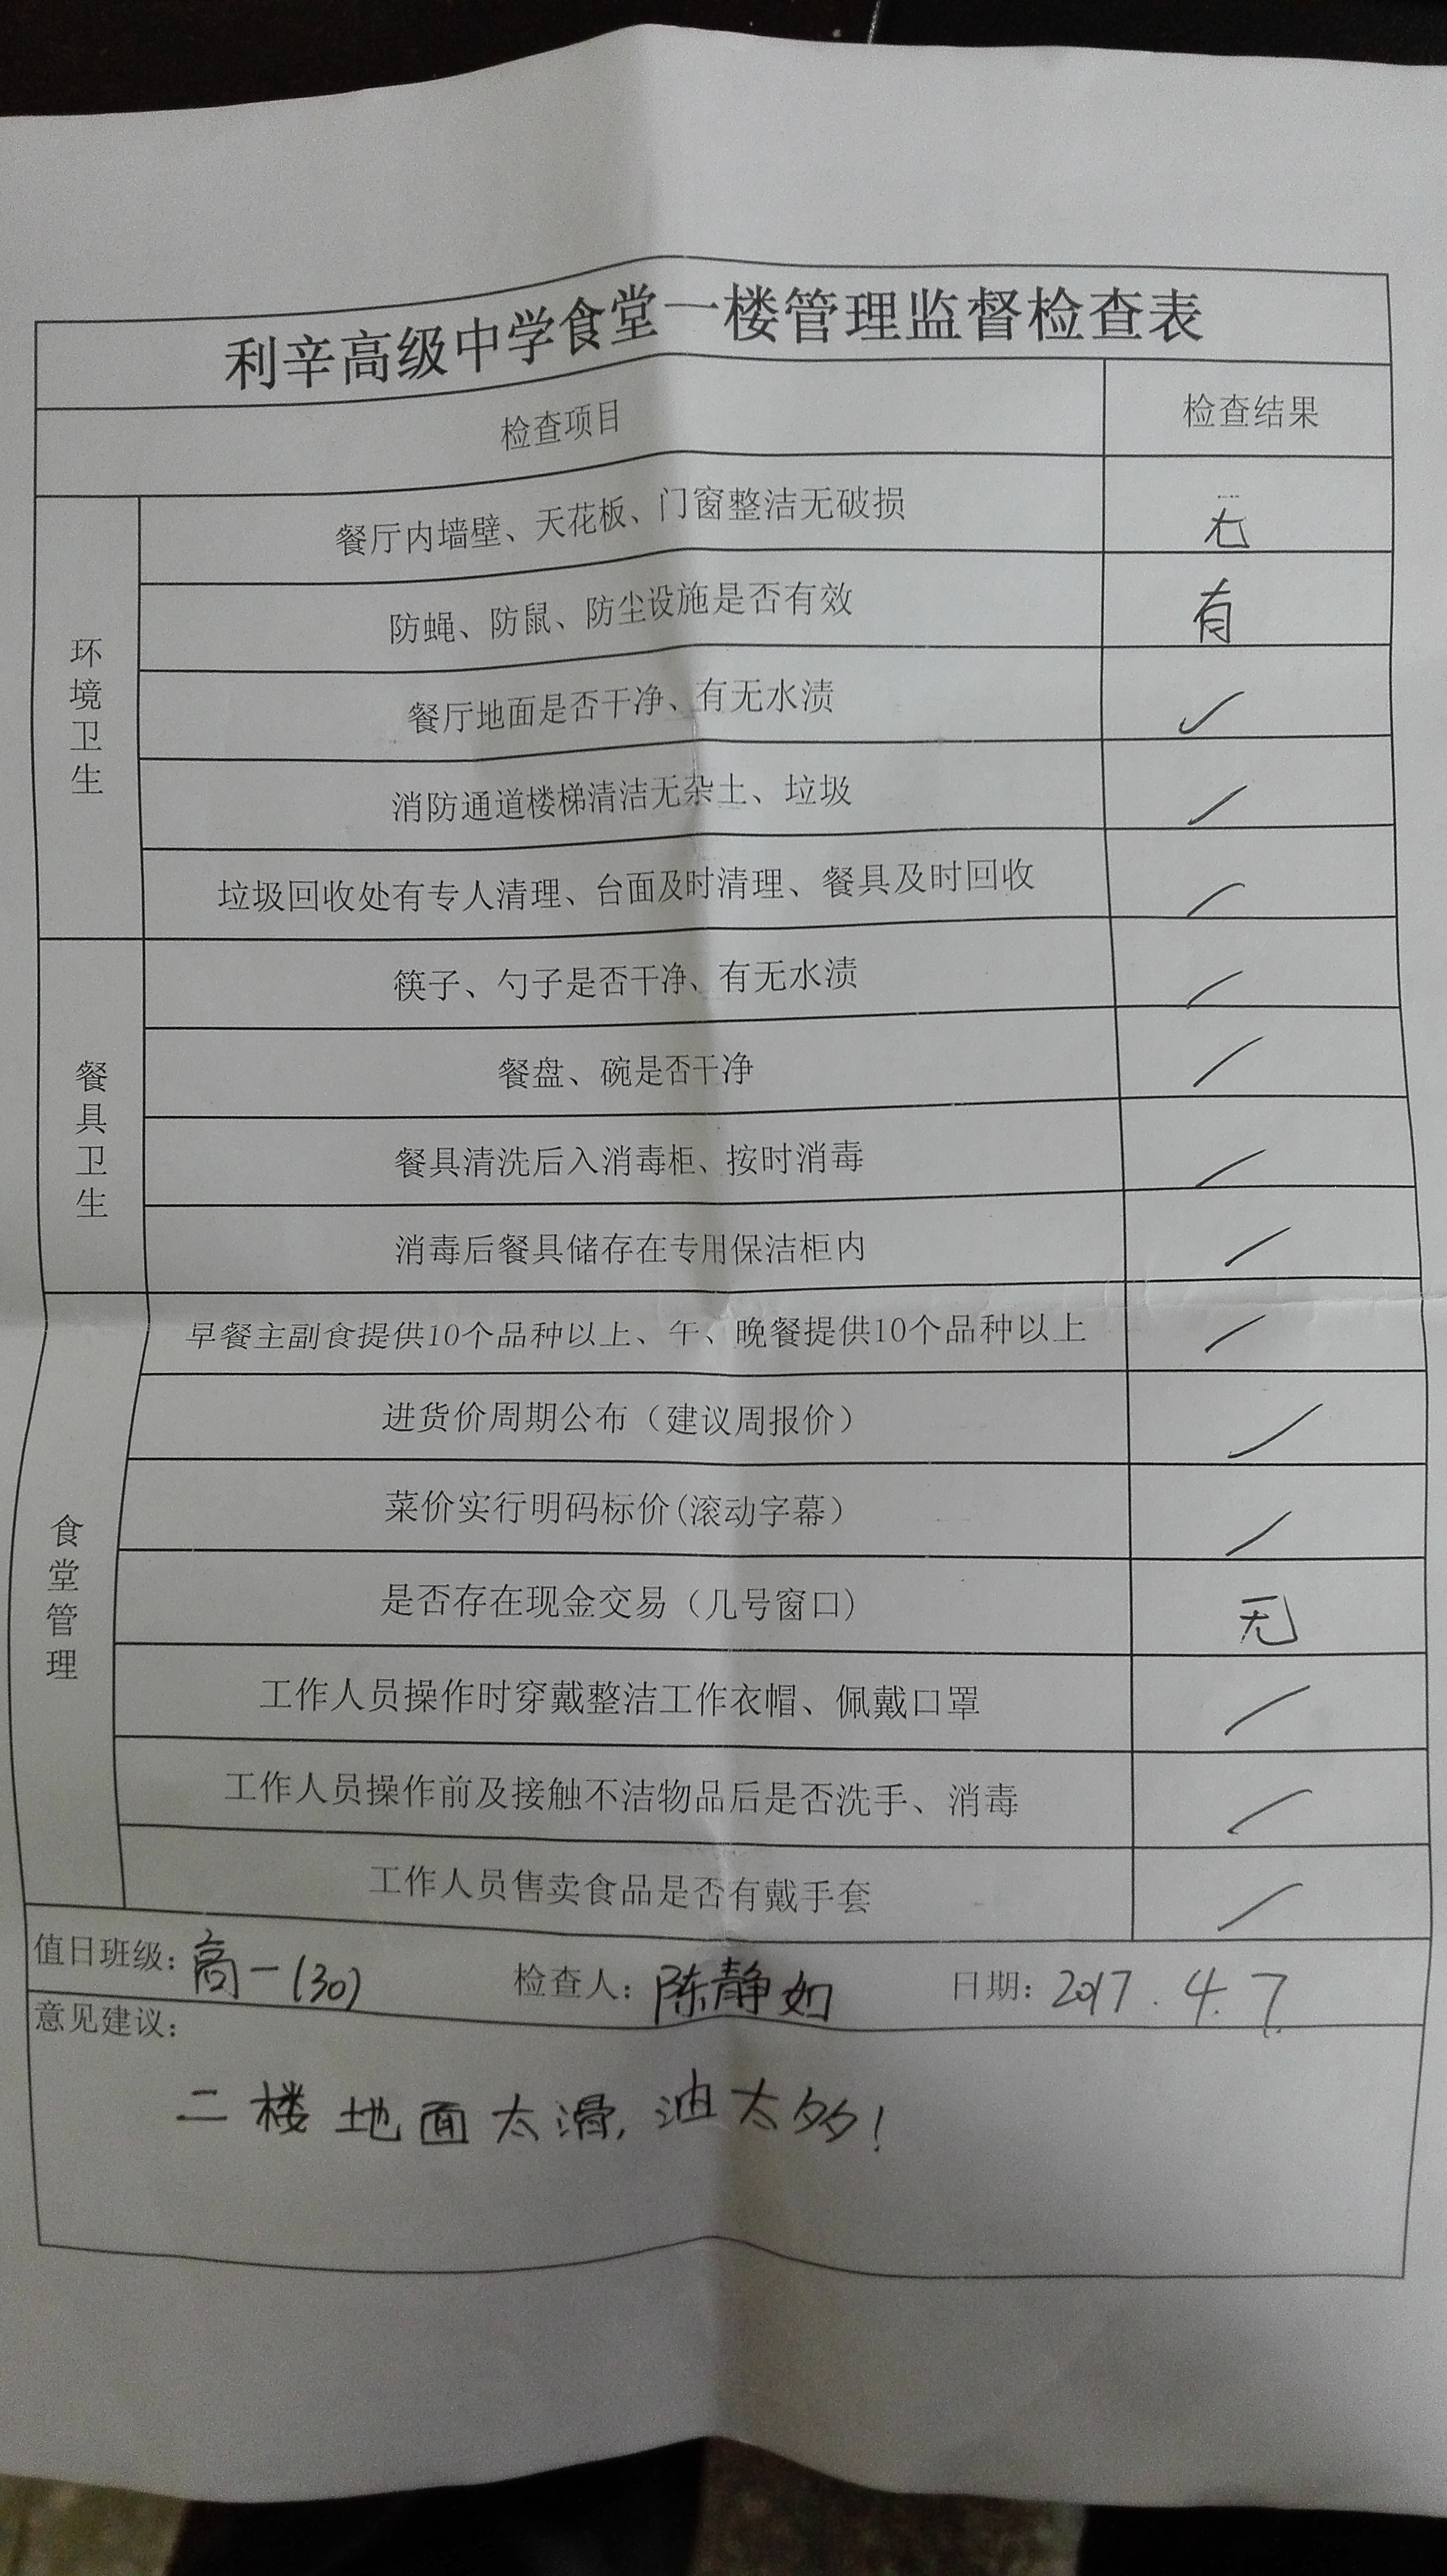 利辛高级中学食堂一楼管理监督检查表
检查项目 检查结果
环境卫生
餐厅内墙壁、天花板、门窗整洁无破损 无
防蝇、防鼠、防尘设施是否有效 有
餐厅地面是否干净、有无水渍 ✓
消防通道楼梯清洁无杂土、垃圾 ✓
垃圾回收处有专人清理、台面及时清理、餐具及时回收 ✓
餐具卫生
筷子、勺子是否干净、有无水渍 ✓
餐盘、碗是否干净 ✓
餐具清洗后入消毒柜、按时消毒 ✓
消毒后餐具储存在专用保洁柜内 ✓
食堂管理
早餐主副食提供10个品种以上、午、晚餐提供10个品种以上 ✓
进货价周期公布（建议周报价） ✓
菜价实行明码标价(滚动字幕） ✓
是否存在现金交易（几号窗口) 无
工作人员操作时穿戴整洁工作衣帽、佩戴口罩 ✓
工作人员操作前及接触不洁物品后是否洗手、消毒 ✓
工作人员售卖食品是否有戴手套 ✓
值日班级：高一(30) 检查人：陈静如 日期：2017.4.7
意见建议：
二楼地面太滑,油太多!